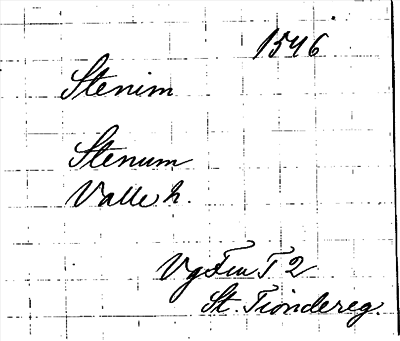 1546
Stenim
Stenum
Valle h.
Vg Fru T 2
St. Tiondereg.